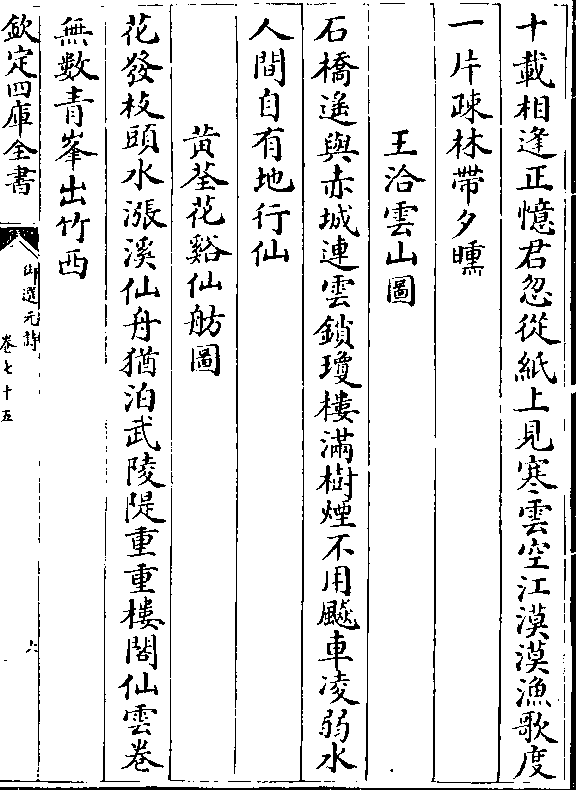 十載相逢正憶君忽從紙上見寒雲空江漠漠漁歌度
一片疎林帶夕曛
王洽雲山圖
石橋遙與赤城連雲鎖瓊樓滿樹煙不用飈車凌弱水
人間自有地行仙
黃荃花谿仙舫圖
花發枝頭水漲溪仙舟猶泊武陵隄重重樓閣仙雲卷
無數青峯出竹西
欽定四庫全書
御選元詩
卷七十五
六